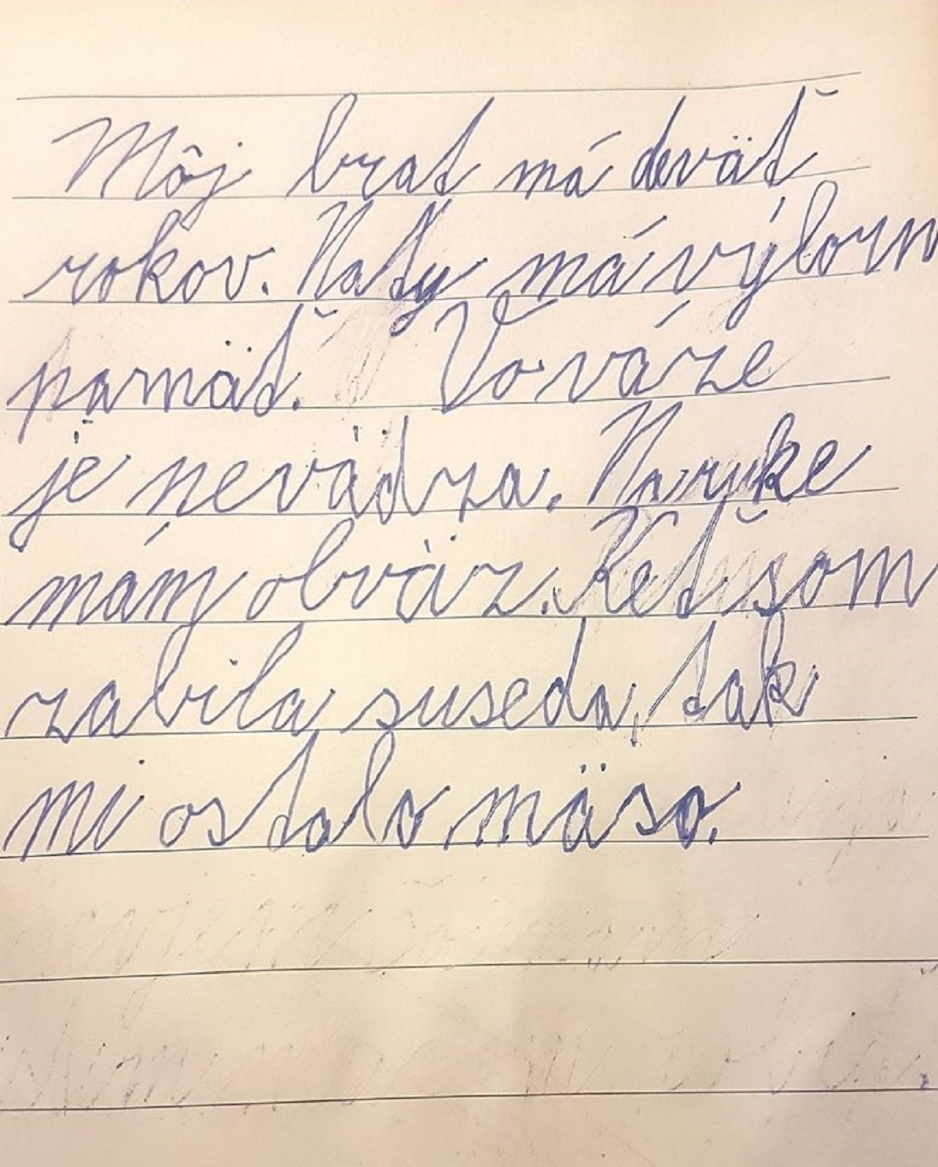 Môj brat má devät
rokov. Naty má výborn
pamäť. Vo váze
je nevädza. Na ruke
mám obväz. Keť som
zabila suseda, tak
mi ostalo mäso.